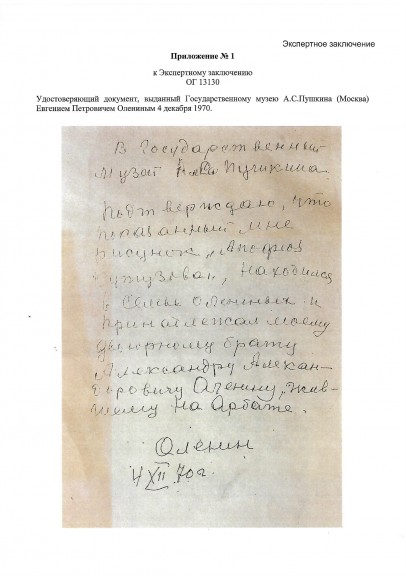 Экспертное заключение
Приложение № 1
к Экспертному заключению
ОГ 13130
Удостоверяющий документ, выданный Государственному музею А.С.Пушкина (Москва)
Евгением Петровичем Олениным 4 декабря 1970.
В Государственный
музей А.С. Пушкина
Подтверждаю, что
показанный мне
рисунок „Апофеоз
Кутузова", находился
в семье Олениных и
принадлежал моему
двоюрному брату
Александру Алексан-
дровичу Оленину, жив-
шему на Арбате.
Оленин
4 XII 70 г.